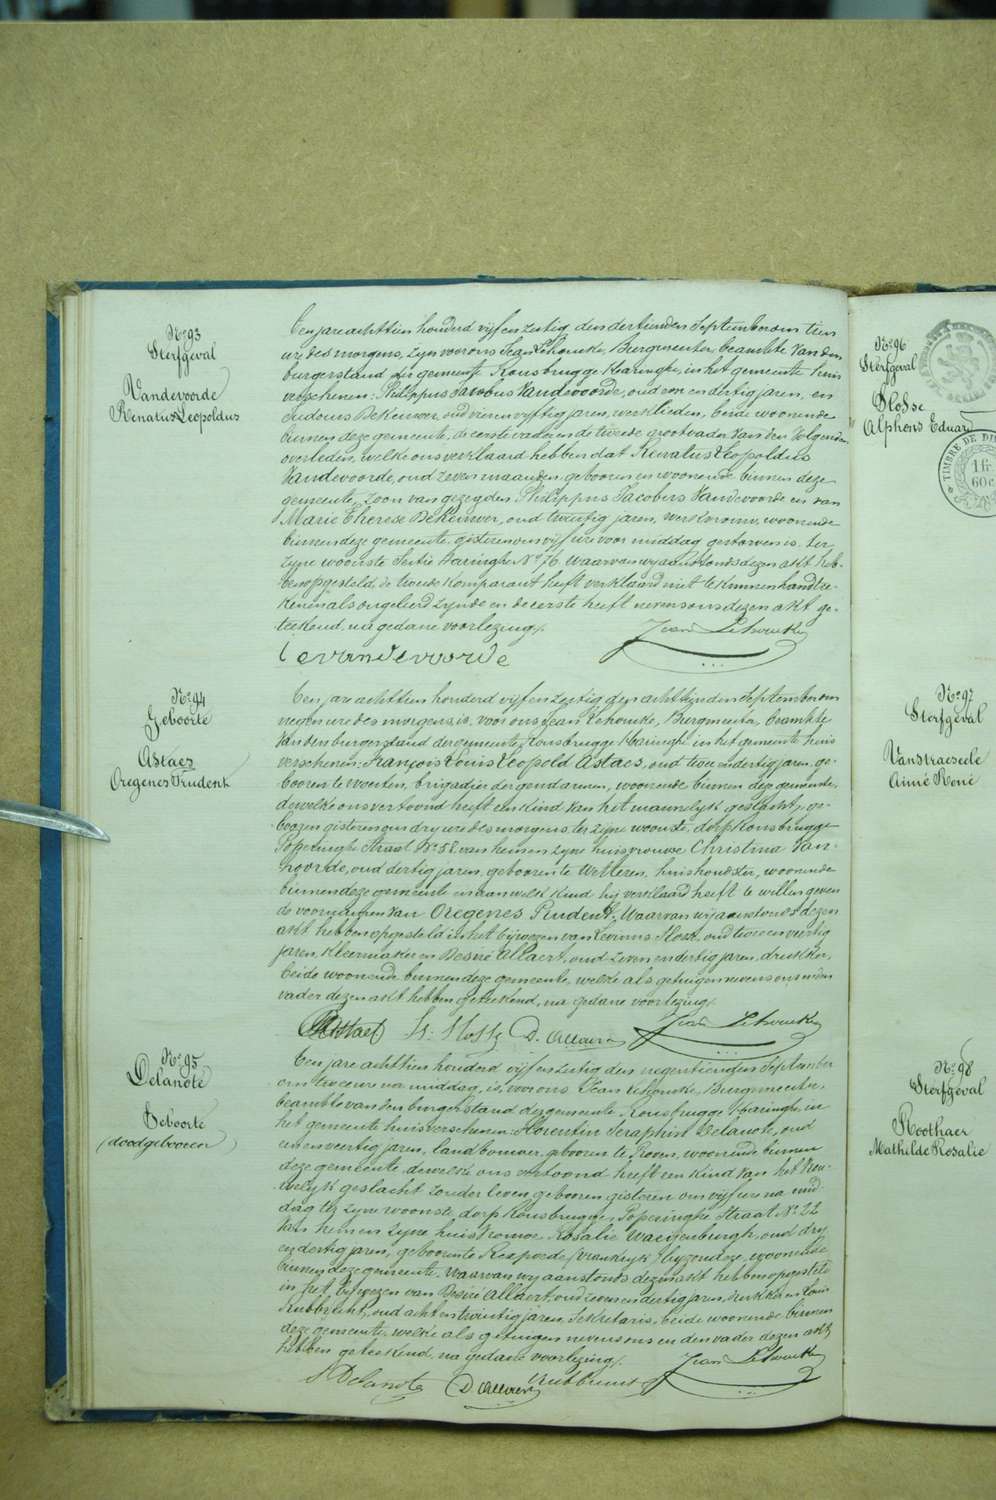 N.º 93
Sterfgeval
Vandevoorde
Renatus Leopoldus
Een jare achttien honderd vijf en zestig, den dertienden September om tien
ure des morgens, zijn voor ons Jean Lehoucke, Burgmeester, beambte van den
burgerstand der gemeente Rousbrugge Haringhe, in het gemeente huis
verschenen: Philippus Jacobus Vandevoorde, oud een en dertig jaren, en
Judocus DeKeuwer, oud vier en vijftig jaren, werklieden, beide woonende
binnen deze gemeente, de eerste vader en de tweede grootvader van den volgenden
overleden, welke ons verklaard hebben dat Renatus Leopoldus
Vandevoorde, oud zeven maanden geboren en woonende binnen deze
gemeente, zoon van gezegden Philippus Jacobus Vandevoorde en van
Marie Therese DeKeuwer, oud twintig jaren, werkvrouw, woonende
binnen deze gemeente, gisteren om vijf ure voor middag gestorven is, ter
zijne woonste Sectie Haringhe N.º 76. Waarvan wij aanstonds dezen akt heb-
ben opgesteld, de tweede komparant heeft verklaard niet te kunnen handtee-
kenen als ongeleerd zijnde en de eerste heeft nevens ons dezen akt ge-
teekend, na gedane voorlezing.
Jean Lehoucke
vandevoorde
N.º 94
Geboorte
Astaes
Oregenes Prudent
Een jare achttien honderd vijf en zestig den achttienden September om
negen ure des morgens, is voor ons Jean Lehoucke, Burgmeester, beambte
van den burgerstand der gemeente Rousbrugge Haringhe in het gemeente huis
verschenen: François Louis Leopold Astaes, oud twee en dertig jaren, ge-
boren te Woesten, brigadier der gendarmen, woonende binnen deze gemeente,
dewelke ons vertoond heeft een kind van het mannelijk geslacht, ge-
boren gisteren om dry ure des morgens ter zijne woonste, dorp Rousbrugge
Poperinghe Straat N.º 58, van hem en zijne huisvrouwe Christina Van-
hoorde, oud dertig jaren, geboren te Wetteren, huishoudster, woonende
binnen deze gemeente en aan welk kind hij verklaard heeft te willen geven
de voornamen van Oregenes Prudent. Waarvan wij aanstonds dezen
akt hebben opgesteld in het bijwezen van Livinus Hoste, oud twee en veertig
jaren, kleermaker en Desiré Allaert, oud zeven en dertig jaren, drukker,
beide woonende binnen deze gemeente, welke als getuigen nevens ons en den
vader dezen akt hebben geteekend, na gedane voorlezing.
Astaes D. Allaert Jean Lehoucke
N.º 95
Delanote
Geboorte
(doodgebooren)
Een jare achttien honderd vijf en zestig den negentienden September
om twee ure na middag, is voor ons Jean Lehoucke, Burgmeester,
beambte van den burgerstand der gemeente Rousbrugge Haringhe, in
het gemeente huis verschenen: Florentin Seraphin Delanote, oud
een en veertig jaren, landbouwer, geboren te Proven, woonende binnen
deze gemeente, dewelke ons vertoond heeft een kind van het vrou-
welijk geslacht zonder leven geboren gisteren om vijf ure na mid-
dag ter zijne woonste, dorp Rousbrugge, Poperinghe Straat N.º 22
van hem en zijne huisvrouwe Rosalie Waeyenburgh, oud dry
en dertig jaren, geboren te Rexpoede (Vrankrijk) bijzondere, woonende
binnen deze gemeente. Waarvan wij aanstonds dezen akt hebben opgesteld
in het bijwezen van Desiré Allaert, oud zeven en dertig jaren, drukker en Louis
Rubbrecht, oud acht en twintig jaren, Sekretaris, beide woonende binnen
deze gemeente, welke als getuigen nevens ons en den vader dezen akt
hebben geteekend, na gedane voorlezing.
Jean Lehoucke
Delanote D. Allaert Rubbrecht
N.º 96
Sterfgeval
Blosse
Alphons Eduard
TIMBRE DE DI
1 fr
60 c
N.º 97
Sterfgeval
Vanstraeseele
Aimé René
N.º 98
Sterfgeval
Roothaer
Mathilde Rosalie